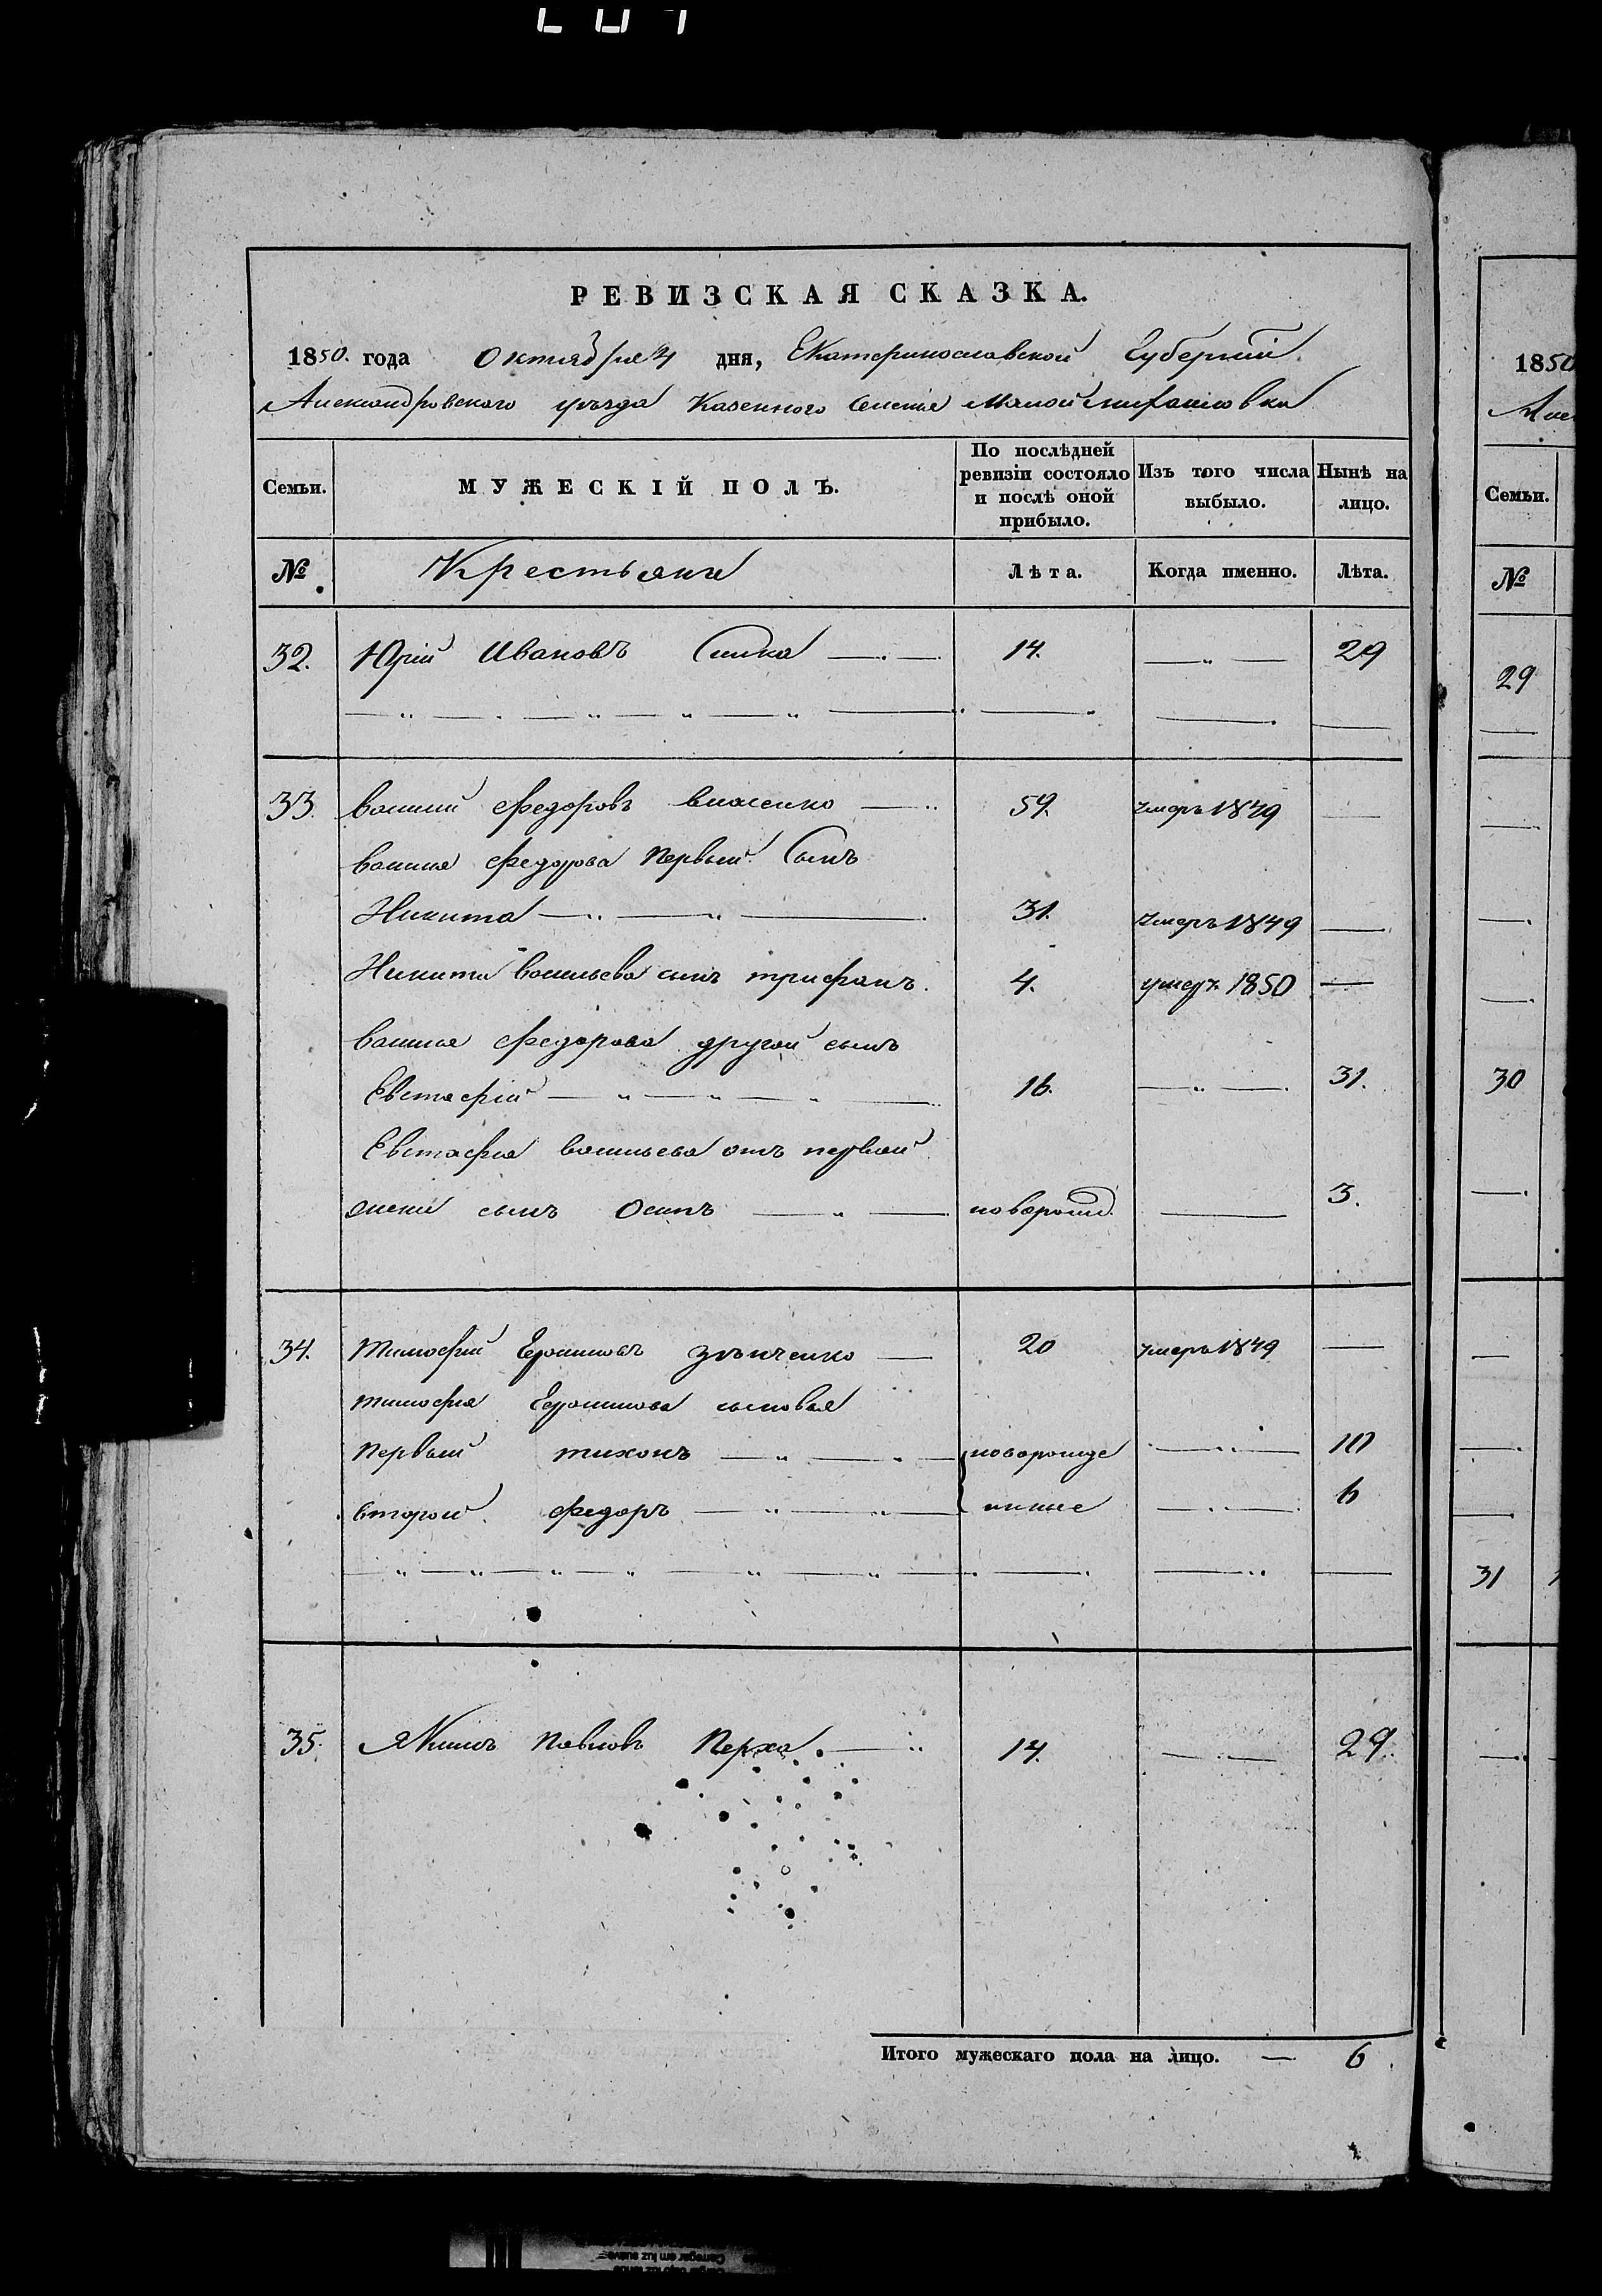 РЕВИЗСКАЯ СКАЗКА.
1850. года Октября 4 дня, Екатеринославской Губерніи
Александровскаго уезда Казенного Селенія Малой михайловки
Семьи. МУЖЕСКІЙ ПОЛЪ. По послѣдней ревизіи состояло и послѣ оной прибыло. Изъ того числа выбыло. Нынѣ на лицо.
№ Крестьяне Лѣта. Когда именно. Лѣта.
32. Юрій Ивановъ 14. — 29
33. василий федоровъ власенко — 59. умеръ 1849 —
василия федорова Первый Сынъ
Никита — 31. умеръ 1849 —
Никиты васильева сынъ трифанъ. 4. умеръ 1850 —
василия федорова другой сынъ
Евстафій — 16. — 31.
Евстафия васильева отъ первой
жены сынъ Осипъ — новорожд. — 3.
34. Тимофей Ерошовъ — 20 умеръ 1849 —
тимофея сыновья
Первый тихонъ — новорожде — 10
второй федоръ — нные — 6
35. Якимъ Павловъ Перха. — 14. — 29.
Итого мужескаго пола на лицо. — 6
1850
Семьи.
№
29
30
31